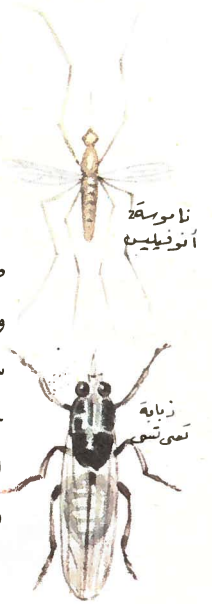 ناموسة
أنوفيليس
ذبابة
تسى تسى